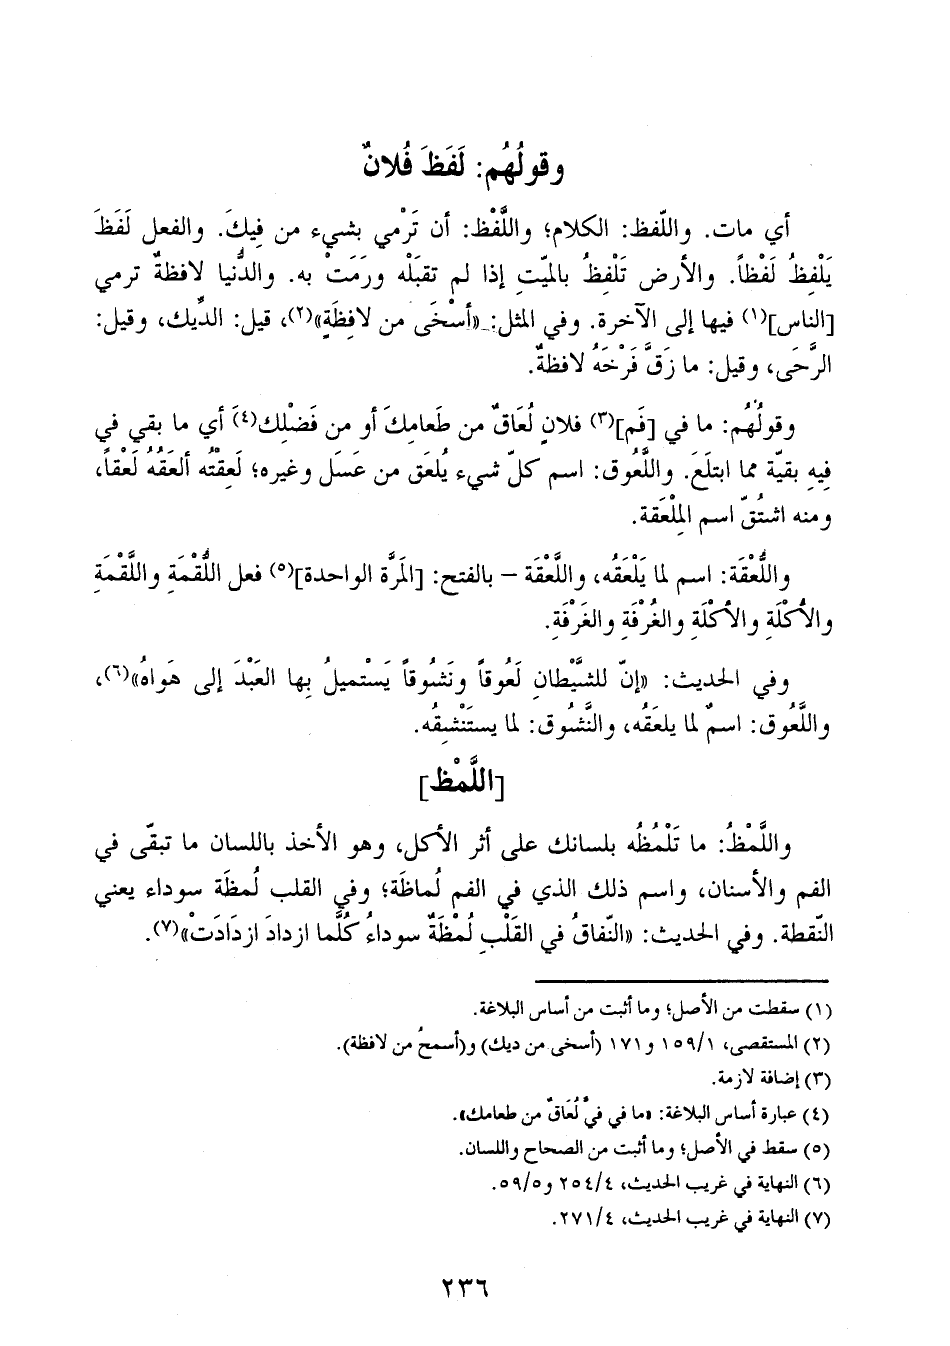 وقولُهُم: لَفَظَ فُلانٌ
أي مات. واللّفظ: الكلام؛ واللَّفْظ: أن تَرْمي بشيء من فِيكَ. والفعل لَفَظَ
يَلْفِظُ لَفْظاً. والأرض تَلْفِظُ بالميّتِ إذا لم تقبَلْه ورَمَتْ به. والدُّنيا لافظةٌ ترمي
[الناس](١) فيها إلى الآخرة. وفي المثل: «أسْخَى من لافِظَةٍ»(٢)، قيل: الدِّيك، وقيل:
الرَّحَى، وقيل: ما زَقَّ فَرْخَهُ لافظةٌ.
وقولُهُم: ما في [فَم](٣) فلانٍ لُعَاقٌ من طَعامِكَ أو من فَضْلِك(٤) أي ما بقي في
فِيهِ بقيّة مما ابتلَعَ. واللَّعُوق: اسم كلّ شيء يُلعَق من عَسَل وغيره؛ لَعِقْتُه ألعَقُهُ لَعْقاً،
ومنه اشتُقّ اسم المِلْعَقة.
واللُّعْقَة: اسم لما يَلْعَقُه، واللَّعْقَة - بالفتح: [المَرَّة الواحدة](٥) فعل اللُّقْمَةِ واللَّقْمَةِ
والأُكْلَةِ والأَكْلَةِ والغُرْفَةِ والغَرْفَةِ.
وفي الحديث: «إنّ للشَّيْطانِ لَعُوقاً ونَشُوقاً يَسْتميلُ بِها العَبْدَ إلى هَواهُ»(٦)،
واللَّعُوق: اسمٌ لما يلعَقُه، والنَّشُوق: لما يستَنْشِقُه.
[اللَّمْظ]
واللَّمْظُ: ما تَلْمُظُه بلسانك على أثر الأكل، وهو الأخذ باللسان ما تبقّى في
الفم والأسنان، واسم ذلك الذي في الفم لُماظَة؛ وفي القلب لُمظَة سوداء يعني
النّقطة. وفي الحديث: «النّفاقُ في القَلْبِ لُمْظَةٌ سوداءُ كُلَّما ازدادَ ازدَادَتْ»(٧).
(١) سقطت من الأصل؛ وما أثبت من أساس البلاغة.
(٢) المستقصى، ١/ ١٥٩ و ١٧١ (أسخى من ديك) و(أسمحُ من لافظة).
(٣) إضافة لازمة.
(٤) عبارة أساس البلاغة: «ما في فيَّ لُعَاقٌ من طعامك».
(٥) سقط في الأصل؛ وما أثبت من الصحاح واللسان.
(٦) النهاية في غريب الحديث، ٤/ ٢٥٤ و٥/ ٥٩.
(٧) النهاية في غريب الحديث، ٤/ ٢٧١.
٢٣٦